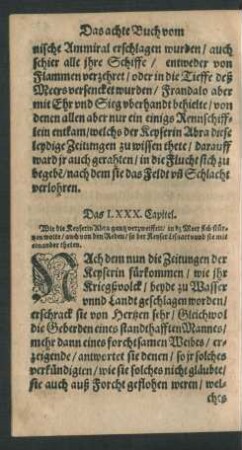 Das achte Buch vom
nische Ammiral erschlagen wurden / auch
schier alle jhre Schiffe / entweder von
Flammen verzehret / oder in die Tieffe deß
Meers versencket wurden / Frandalo aber
mit Ehr vnd Sieg vberhandt behielte / von
denen allen aber nur ein einigs Rennschiff-
lein entkam / welchs der Keyserin Abra diese
leydige Zeitungen zu wissen thete / darauff
ward jr auch gerahten / in die Flucht sich zu
begebē / nach dem sie das Feldt vñ Schlacht
verlohren.
Das LXXX. Capitel.
Wie die Keyserin Abra gantz verzweiffelt / in dz Meer sich stür-
tzen wolte / auch von den Reden / so der Keyser Lisuart vnnd sie mit
einander theten.
NAch dem nun die Zeitungen der
Keyserin fürkommen / wie jhr
Kriegßvolck / beyde zu Wasser
vnnd Landt geschlagen worden /
erschrack sie von Hertzen sehr / Gleichwol
die Geberden eines standthafften Mannes /
mehr dann eines forchtsamen Weibes / er-
zeigende / antwortet sie denen / so jr solches
verkündigten / wie sie solches nicht gläubte /
sie auch auß Forcht geflohen weren / wel-
ches